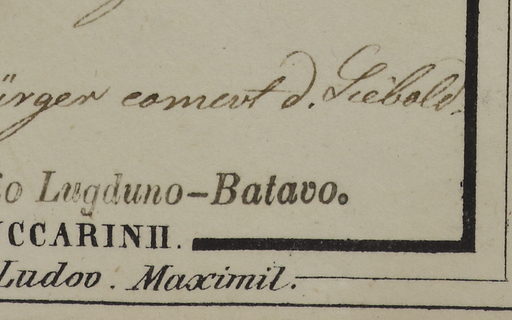 ürger comevt d. Siebold.
io Lugduno-Batavo.
UCCARINII.
Ludov. Maximil.